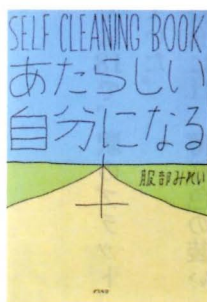 SELF CLEANING BOOK
あたらしい
自分になる本
服部みれい